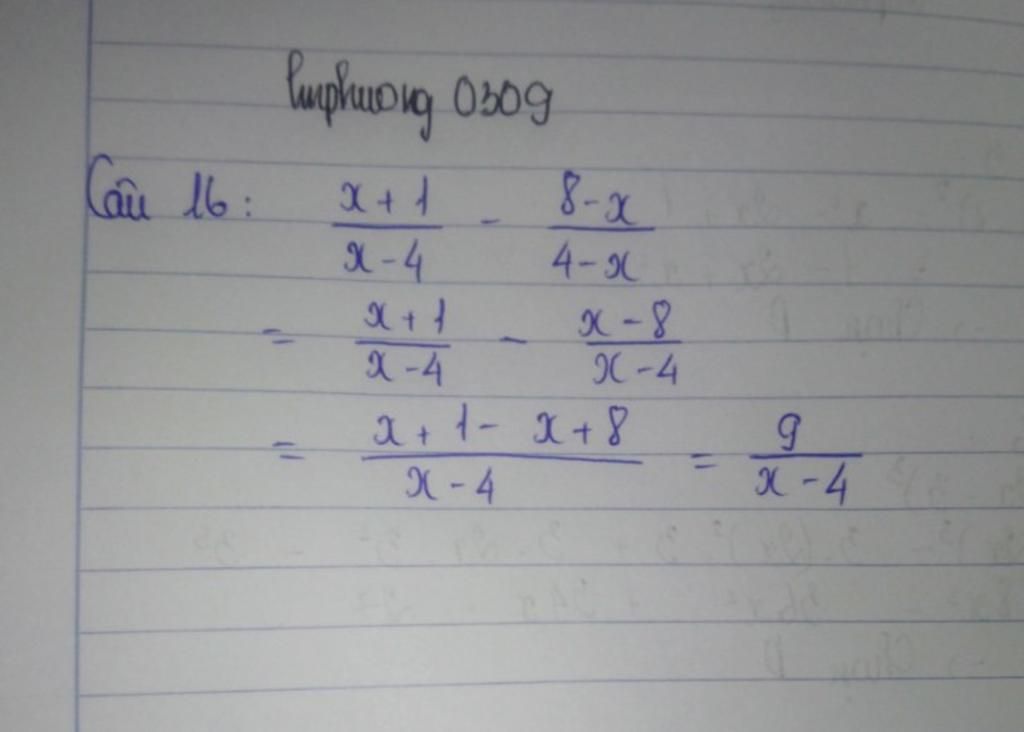 lmphuong 0309
Câu 16: \frac{x+1}{x-4} - \frac{8-x}{4-x}
= \frac{x+1}{x-4} - \frac{x-8}{x-4}
= \frac{x+1-x+8}{x-4} = \frac{9}{x-4}